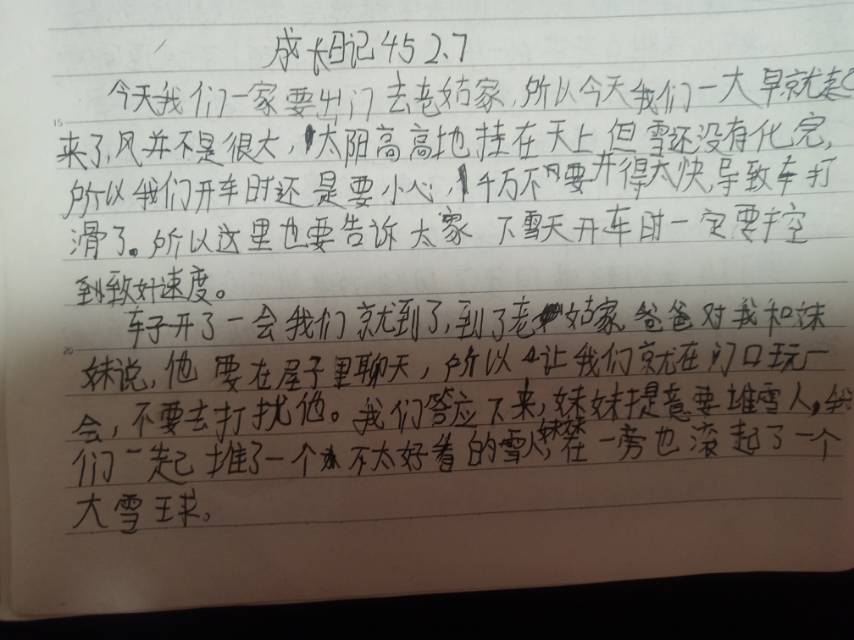 成长日记45 2.7
今天我们一家要出门去老姑家,所以今天我们一大早就起
来了,风并不是很大,太阳高高地挂在天上,但雪还没有化完,
所以我们开车时还是要小心,千万不要开得太快,导致车打
滑了。所以这里也要告诉大家 下雪天开车时一定要控
到致好速度。
车子开了一会我们就到了,到了老姑家,爸爸对我和妹
妹说,他要在屋子里聊天,所以让我们就在门口玩一
会,不要去打扰他。我们答应下来,妹妹提意要堆雪人,我
们一起堆了一个不太好看的雪人,妹妹在一旁也滚起了一个
大雪球。
15
20